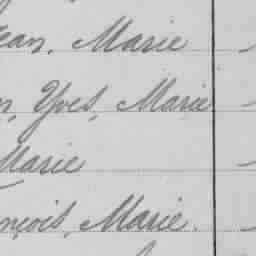 ean, Marie
n, Yves, Marie
Marie
nçois, Marie.